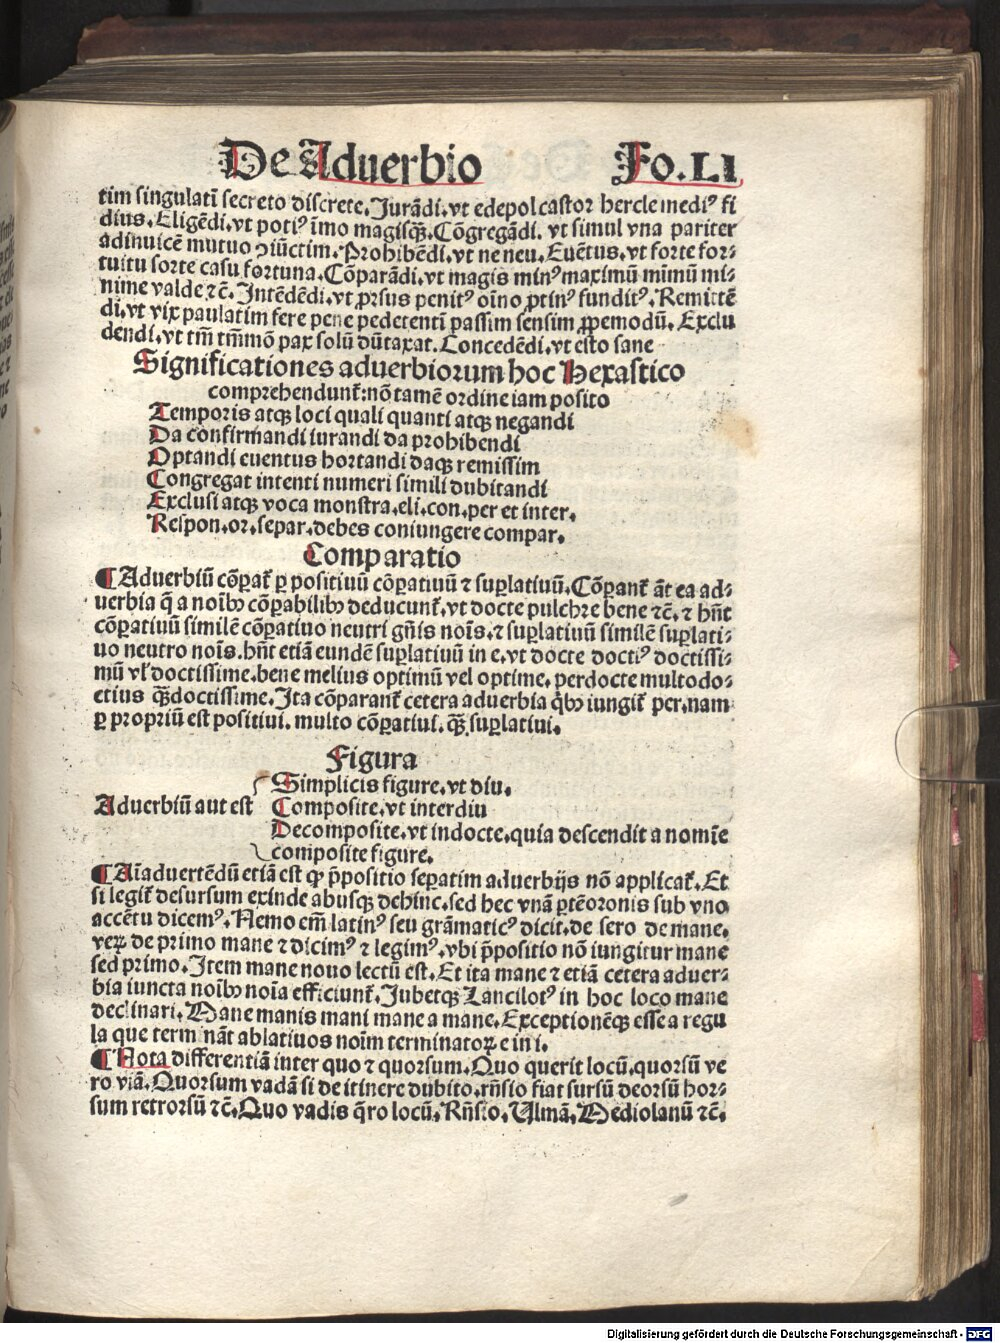 De Aduerbio Fo.LI
tim singulatī secreto discrete. Jurādi. vt edepol castor hercle mediꝰ fi
dius. Eligēdi. vt potiꝰ īmo magisqꝫ. Cōgregādi. vt simul vna pariter
adinuicē mutuo ↄiūctim. Prohibēdi. vt ne neu. Euētus. vt forte for⸗
tuitu sorte casu fortuna. Cōparādi. vt magis minꝰ maximū mīmū mi⸗
nime valde ⁊c̄. Intēdēdi. vt ꝓrsus penitꝰ oīno ꝓtinꝰ funditꝰ. Remittē
di. vt vix paulatim fere pene pedetentī passim sensim ꝓpemodū. Exclu
dendi. vt tm̄ tm̄mō pax solū dūtaxat. Concedēdi. vt esto sane
Significationes aduerbiorum hoc Hexastico
comprehendunt᷑: nō tamē ordine iam posito
Temporis atqꝫ loci quali quanti atqꝫ negandi
Da confirmandi iurandi da prohibendi
Optandi euentus hortandi daqꝫ remissim
Congregat intenti numeri simili dubitandi
Exclusi atqꝫ voca monstra. eli. con. per et inter.
Respon. or. separ. debes coniungere compar.
Comparatio
¶ Aduerbiū cōꝑat᷑ ꝑ positiuū cōꝑatiuū ⁊ suꝑlatiuū. Cōꝑant᷑ āt ea ad⸗
uerbia q̄ a noībꝫ cōꝑabilibꝫ deducunt᷑. vt docte pulchre bene ⁊c̄. ⁊ hn̄t
cōꝑatiuū similē cōꝑatiuo neutri gn̄is noīs. ⁊ suꝑlatiuū similē suꝑlati⸗
uo neutro noīs. hn̄t etiā eundē suꝑlatiuū in e. vt docte doctiꝰ doctissi⸗
mū vl̓ doctissime. bene melius optimū vel optime. perdocte multo do⸗
ctius qꝫ̄ doctissime. Ita cōparant᷑ cetera aduerbia q̓bꝫ iungit᷑ per. nam
ꝑ propriū est positiui. multo cōꝑatiui. qꝫ̄ suꝑlatiui.
Figura
Simplicis figure. vt diu.
Aduerbiū aut est Composite. vt interdiu
Decomposite. vt indocte. quia descendit a nomīe
composite figure.
¶ Aīaduertēdū etiā est ꝙ p̄positio seꝑatim aduerbijs nō applicat᷑. Et
si legit᷑ desursum exinde abusqꝫ dehinc. sed hec vnā ꝑtē oronis sub vno
accētu dicemꝰ. Nemo em̄ latinꝰ seu grāmaticꝰ dicit. de sero de mane.
veꝝ de primo mane ⁊ dicimꝰ ⁊ legimꝰ. vbi p̄positio nō iungitur mane
sed primo. Item mane nouo lectū est. Et ita mane ⁊ etiā cetera aduer⸗
bia iuncta noībꝫ noīa efficiunt᷑. Jubetqꝫ Lancilotꝰ in hoc loco mane
declinari. Mane manis mani mane a mane. Exceptionēqꝫ esse a regu
la que termināt ablatiuos noīm terminatoꝝ e in i.
¶ Nota differentiā inter quo ⁊ quorsum. Quo querit locū. quorsū ve
ro viā. Quorsum vadā si de itinere dubito. rn̄sio fiat sursū deorsū hor⸗
sum retrorsū ⁊c̄. Quo vadis q̄ro locū. Rn̄sio. Ulmā. Mediolanū ⁊c̄.
Digitalisierung gefördert durch die Deutsche Forschungsgemeinschaft - DFG